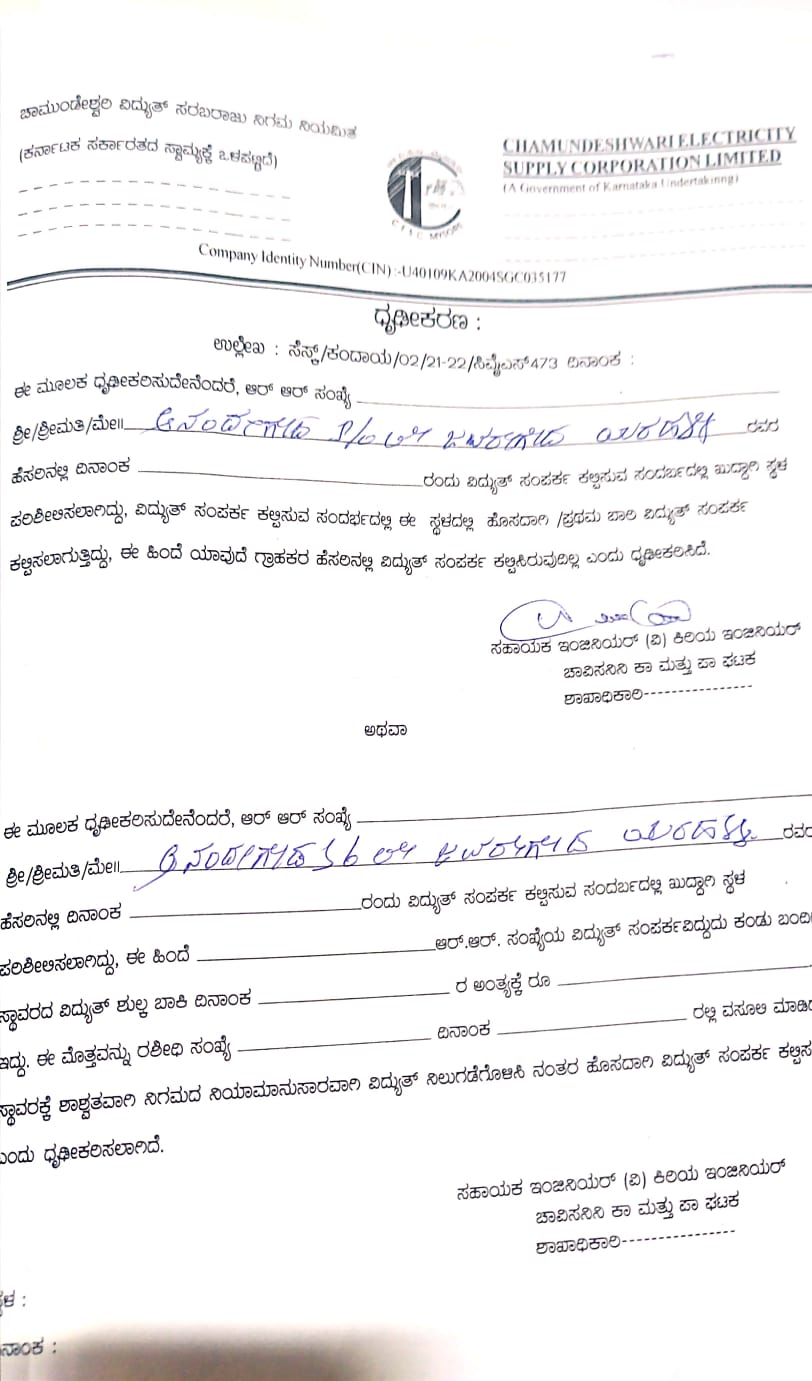 ಚಾಮುಂಡೇಶ್ವರಿ ವಿದ್ಯುತ್ ಸರಬರಾಜು ನಿಗಮ ನಿಯಮಿತ
(ಕರ್ನಾಟಕ ಸರ್ಕಾರತದ ಸ್ವಾಮ್ಯಕ್ಕೆ ಒಳಪಟ್ಟಿದೆ)
CHAMUNDESHWARI ELECTRICITY
SUPPLY CORPORATION LIMITED
(A Government of Karnataka Undertakinng)
Company Identity Number(CIN) :-U40109KA2004SGC035177
ಧೃಢೀಕರಣ :
ಉಲ್ಲೇಖ : ಸೆಸ್ಕ್/ಕಂದಾಯ/02/21-22/ಸಿವೈಎಸ್473 ದಿನಾಂಕ :
ಈ ಮೂಲಕ ಧೃಢೀಕರಿಸುದೇನೆಂದರೆ, ಆರ್ ಆರ್ ಸಂಖ್ಯೆ
ಶ್ರೀ/ಶ್ರೀಮತಿ/ಮೇ॥ ರವರ
ಹೆಸರಿನಲ್ಲಿ ದಿನಾಂಕ ರಂದು ವಿದ್ಯುತ್ ಸಂಪರ್ಕ ಕಲ್ಪಿಸುವ ಸಂದರ್ಬದಲ್ಲಿ ಖುದ್ದಾಗಿ ಸ್ಥಳ
ಪರಿಶೀಲಿಸಲಾಗಿದ್ದು, ವಿದ್ಯುತ್ ಸಂಪರ್ಕ ಕಲ್ಪಿಸುವ ಸಂದರ್ಭದಲ್ಲಿ ಈ ಸ್ಥಳದಲ್ಲಿ ಹೊಸದಾಗಿ /ಪ್ರಥಮ ಬಾರಿ ವಿದ್ಯುತ್ ಸಂಪರ್ಕ
ಕಲ್ಪಿಸಲಾಗುತ್ತಿದ್ದು, ಈ ಹಿಂದೆ ಯಾವುದೆ ಗ್ರಾಹಕರ ಹೆಸರಿನಲ್ಲಿ ವಿದ್ಯುತ್ ಸಂಪರ್ಕ ಕಲ್ಪಿಸಿರುವುದಿಲ್ಲ ಎಂದು ಧೃಢೀಕರಿಸಿದೆ.
ಸಹಾಯಕ ಇಂಜಿನಿಯರ್ (ವಿ) ಕಿರಿಯ ಇಂಜಿನಿಯರ್
ಚಾವಿಸನಿನಿ ಕಾ ಮತ್ತು ಪಾ ಘಟಕ
ಶಾಖಾಧಿಕಾರಿ----------------
ಅಥವಾ
ಈ ಮೂಲಕ ಧೃಢೀಕರಿಸುದೇನೆಂದರೆ, ಆರ್ ಆರ್ ಸಂಖ್ಯೆ
ಶ್ರೀ/ಶ್ರೀಮತಿ/ಮೇ॥ ರವರ
ಹೆಸರಿನಲ್ಲಿ ದಿನಾಂಕ ರಂದು ವಿದ್ಯುತ್ ಸಂಪರ್ಕ ಕಲ್ಪಿಸುವ ಸಂದರ್ಬದಲ್ಲಿ ಖುದ್ದಾಗಿ ಸ್ಥಳ
ಪರಿಶೀಲಿಸಲಾಗಿದ್ದು, ಈ ಹಿಂದೆ ಆರ್.ಆರ್. ಸಂಖ್ಯೆಯ ವಿದ್ಯುತ್ ಸಂಪರ್ಕವಿದ್ದುದು ಕಂಡು
ಸ್ಥಾವರದ ವಿದ್ಯುತ್ ಶುಲ್ಕ ಬಾಕಿ ದಿನಾಂಕ ರ ಅಂತ್ಯಕ್ಕೆ ರೂ
ಇದ್ದು. ಈ ಮೊತ್ತವನ್ನು ರಶೀಧಿ ಸಂಖ್ಯೆ ದಿನಾಂಕ ರಲ್ಲಿ ವಸೂಲಿ
ಸ್ಥಾವರಕ್ಕೆ ಶಾಶ್ವತವಾಗಿ ನಿಗಮದ ನಿಯಾಮಾನುಸಾರವಾಗಿ ವಿದ್ಯುತ್ ನಿಲುಗಡೆಗೊಳಿಸಿ ನಂತರ ಹೊಸದಾಗಿ ವಿದ್ಯುತ್ ಸಂಪರ್ಕ
ಎಂದು ಧೃಢೀಕರಿಸಲಾಗಿದೆ.
ಸಹಾಯಕ ಇಂಜಿನಿಯರ್ (ವಿ) ಕಿರಿಯ ಇಂಜಿನಿಯರ್
ಚಾವಿಸನಿನಿ ಕಾ ಮತ್ತು ಪಾ ಘಟಕ
ಶಾಖಾಧಿಕಾರಿ----------------